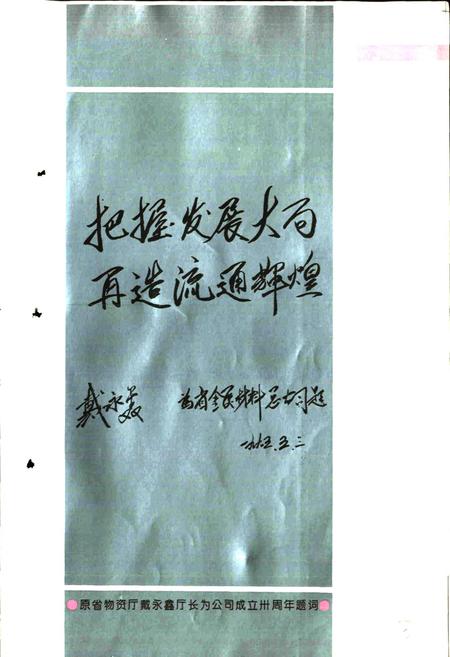 把握发展大局
再造流通辉煌
戴永鑫
为省金属材料总公司题
一九九五.五.二
●原省物资厅戴永鑫厅长为公司成立卅周年题词●